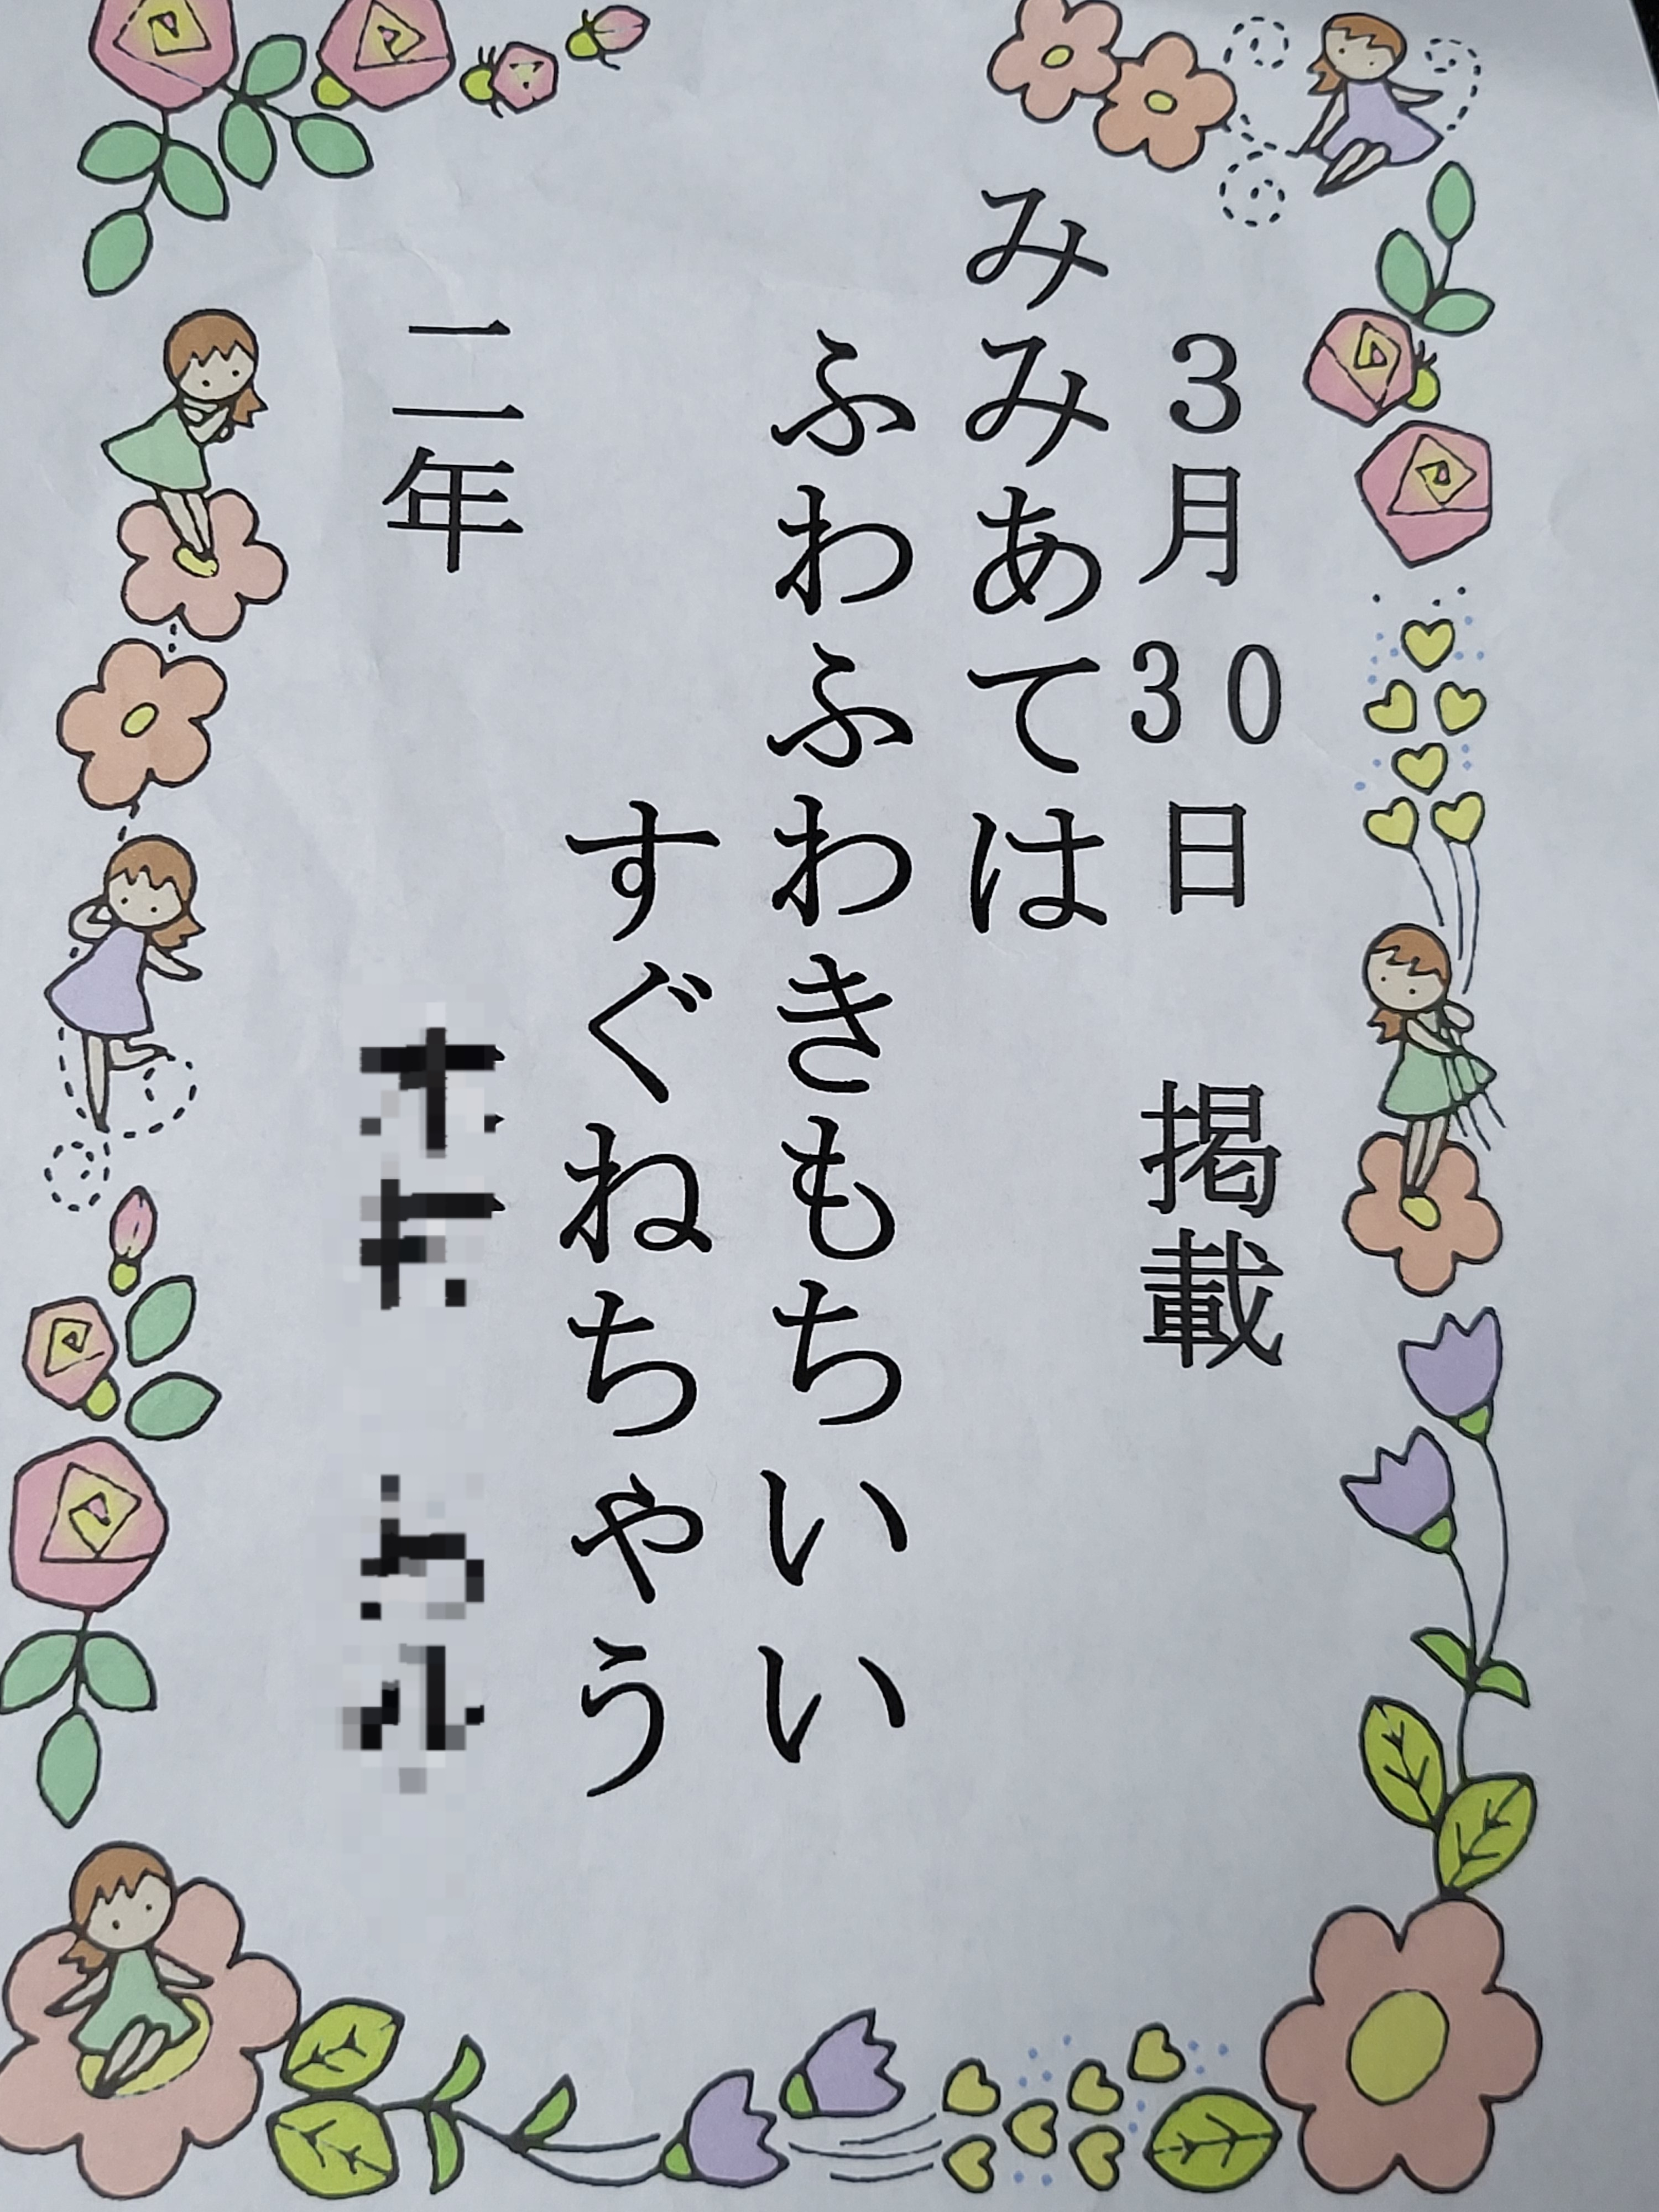 3月30日 掲載
みみあては
ふわふわきもちいい
すぐねちゃう
二年